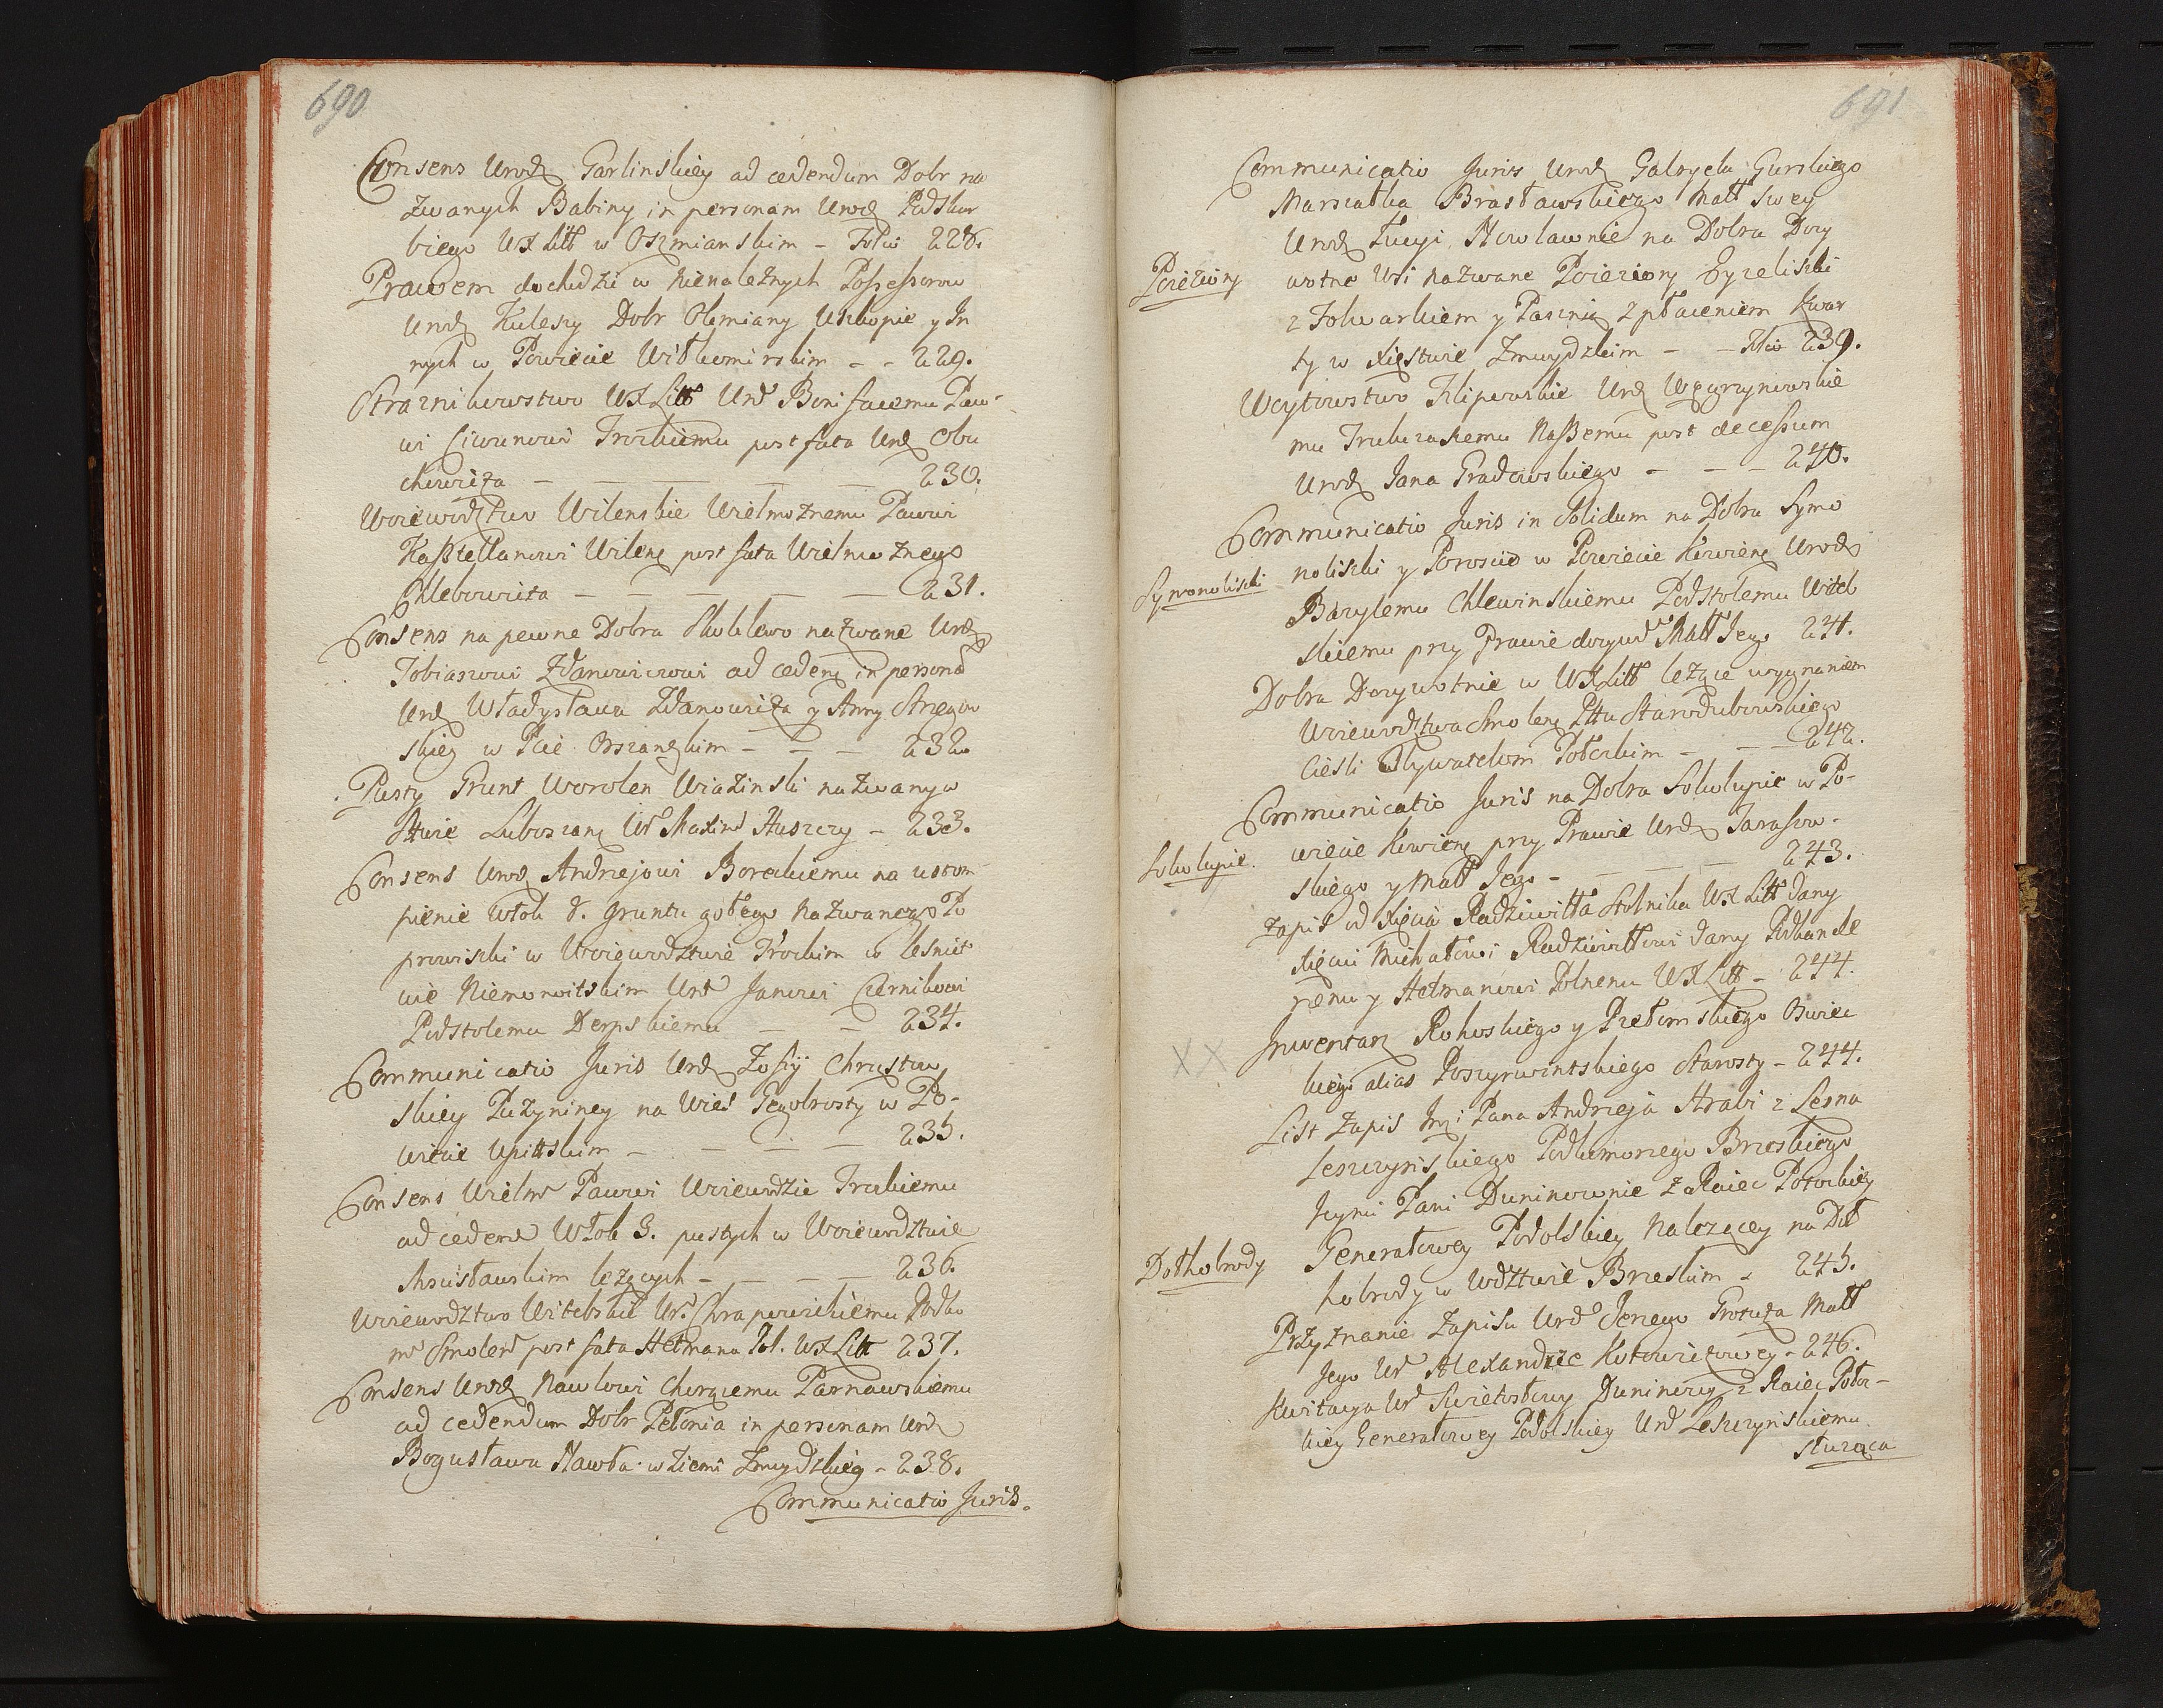 690
Consens Urodz Garlinskiey ad cedendum Dobr na
zwanych Babiny in personam Urodz Podskar
biego WX Litt w Oszmianskim - Folio 228.
Prawem dochodzić w nienależnych Possessorow
Urodz Kuleszy Dobr Olemiany Uszkopie y In
nych w Powiecie Wiłkomirskim - - 229.
Straznikowstwo WX Litt Urd Bonifacemu Paw-
wi Ciwunowi Trockiemu post fata Urdz
chowicza - - - - - 230.
Woiewodztwo Wilenskie Wielmoznemu Pawwi
Kasztellanowi Wilenz post fata Wielmoznego
Chlebowicza - - - - - 231.
Consens na pewne Dobra nazwane Urdz
Tobiaszowi Zdanowiczowi ad ceden in personā
Urdz Władysława Zdanowicza y Anny
skiey w Pcie Orszanskim - - - 232
Pusty Grunt Worolen Wiazinski nazwany w
Sttwie Luboszanz Ur Maxim Huszczy - 233.
Consens Urodz Andrzejowi Boreckiemu na ustom
pienie Włok 8. gruntu gołego nazwanego Po
prowiszki w Woiewodztwie Trockim w Lesnict
wie Niemonoitskim Urd Janowi Czernikowi
Podstolemu Derpskiemu - - 234.
Communicatio Juris Urdz Zofij Chrustow
skiey Puzyniney na Wieś Pegobrosty w Po-
wiecie Upittskim - - - - 235.
Consens Wielm Pawwi Woiewodzie Trockiemu
ad ceden Włok 3. pustych w Woiewodztwie
Mscisławskim lezących - - - - 236.
Woiewodztwo Witebskie Ur. Chrapowickiemu Podko
m Smolen post fata Hetmana Pol. WX Litt 237.
Consens Urodz Nawłowi Chorązemu Parnawskiemu
ad cedendum Dobr Pełonia in personam Urdz
Bogusława Nawła w Ziemi Zmuydzkiey - 238.
Communicatio Juris.
691
Communicatio Juris Urodz Gabryela Gurskiego
Marszałka Brasławskiego Małł swey
Urodz Łucyi Nowławnie na Dobra Dozy
Poieziory
wotne Wsi nazwane Poieziory Eyzeliszki
z Folwarkiem y Pasznią z płaceniem kwar
ty w Xięstwie Zmuydzkim - - Folio 239.
Woytowstwo Filipowskie Urdz Węgrzynowskie
mu Trubaczskemu Naszemu post decessum
Urodz Jana Gradowskiego - - - 240.
Communicatio Juris in Solidum na Dobra Symo
Symonoliszki
noliszki y Porosie w Powiecie Kowienz Urodz
Bazylemu Chlewinskiemu Podstolemu Witeb
skiemu przy Prawie dozywo Małł Jego 241.
Dobra Dozywotnie w WX Litt leżące wygnaniem
Woiewodztwa Smolenz Pttu Starodubowskiego
Cieśli Obywatelom Połockim - - - 242.
Communicatio Juris na Dobra Sokolupie w Po-
Sokolupie.
wiecie Kowienz przy Prawie Urdz Tarasow-
skiego y Małł Jego - - - - 243.
Zapis od Xięcia Radziwiłła Stolnika WX Litt dany
Xięciu Michałowi Radziwiłłowi dany Podkancle
rzemu y Hetmanowi Polnemu WX Litt - 244.
XX
Inwentarz Rohoskiego y Przełomskiego Owiec
kiego alias Poszyrwintskiego Starosty - 244.
List Zapis Jmci Pana Andrzeja Hrabi z Leszna
Leszczynskiego Podkomorzego Brzeskiego
Jeymci Pani Duninownie z Raiec Potockiey
Dołhobrody
Generałowey Podolskiey należącey na Doł
hobrody w Wdztwie Brzeskim - 245.
Przyznanie Zapisu Urd Jerzego Protaza Małł
Jego Ur Alexandrze Kotowiczowey - 246.
Kwitacya Ur Swietosławy Dunineey z Raiec Potoc-
kiey Generałowey Podolskiey Urd Leszczynskiemu
służąca